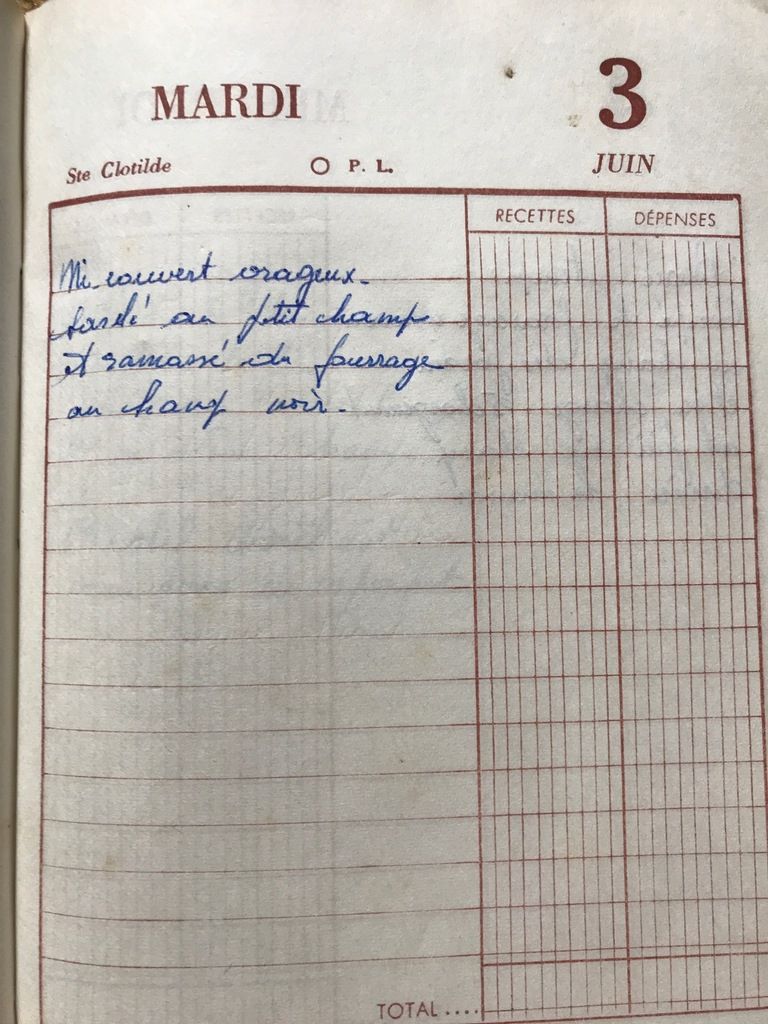 MARDI
3
Ste Clotilde
O P. L.
JUIN
RECETTES
DÉPENSES
Mi-couvert orageux.
sarclé au petit champ
et ramassé du fourrage
au champ noir.
TOTAL ....